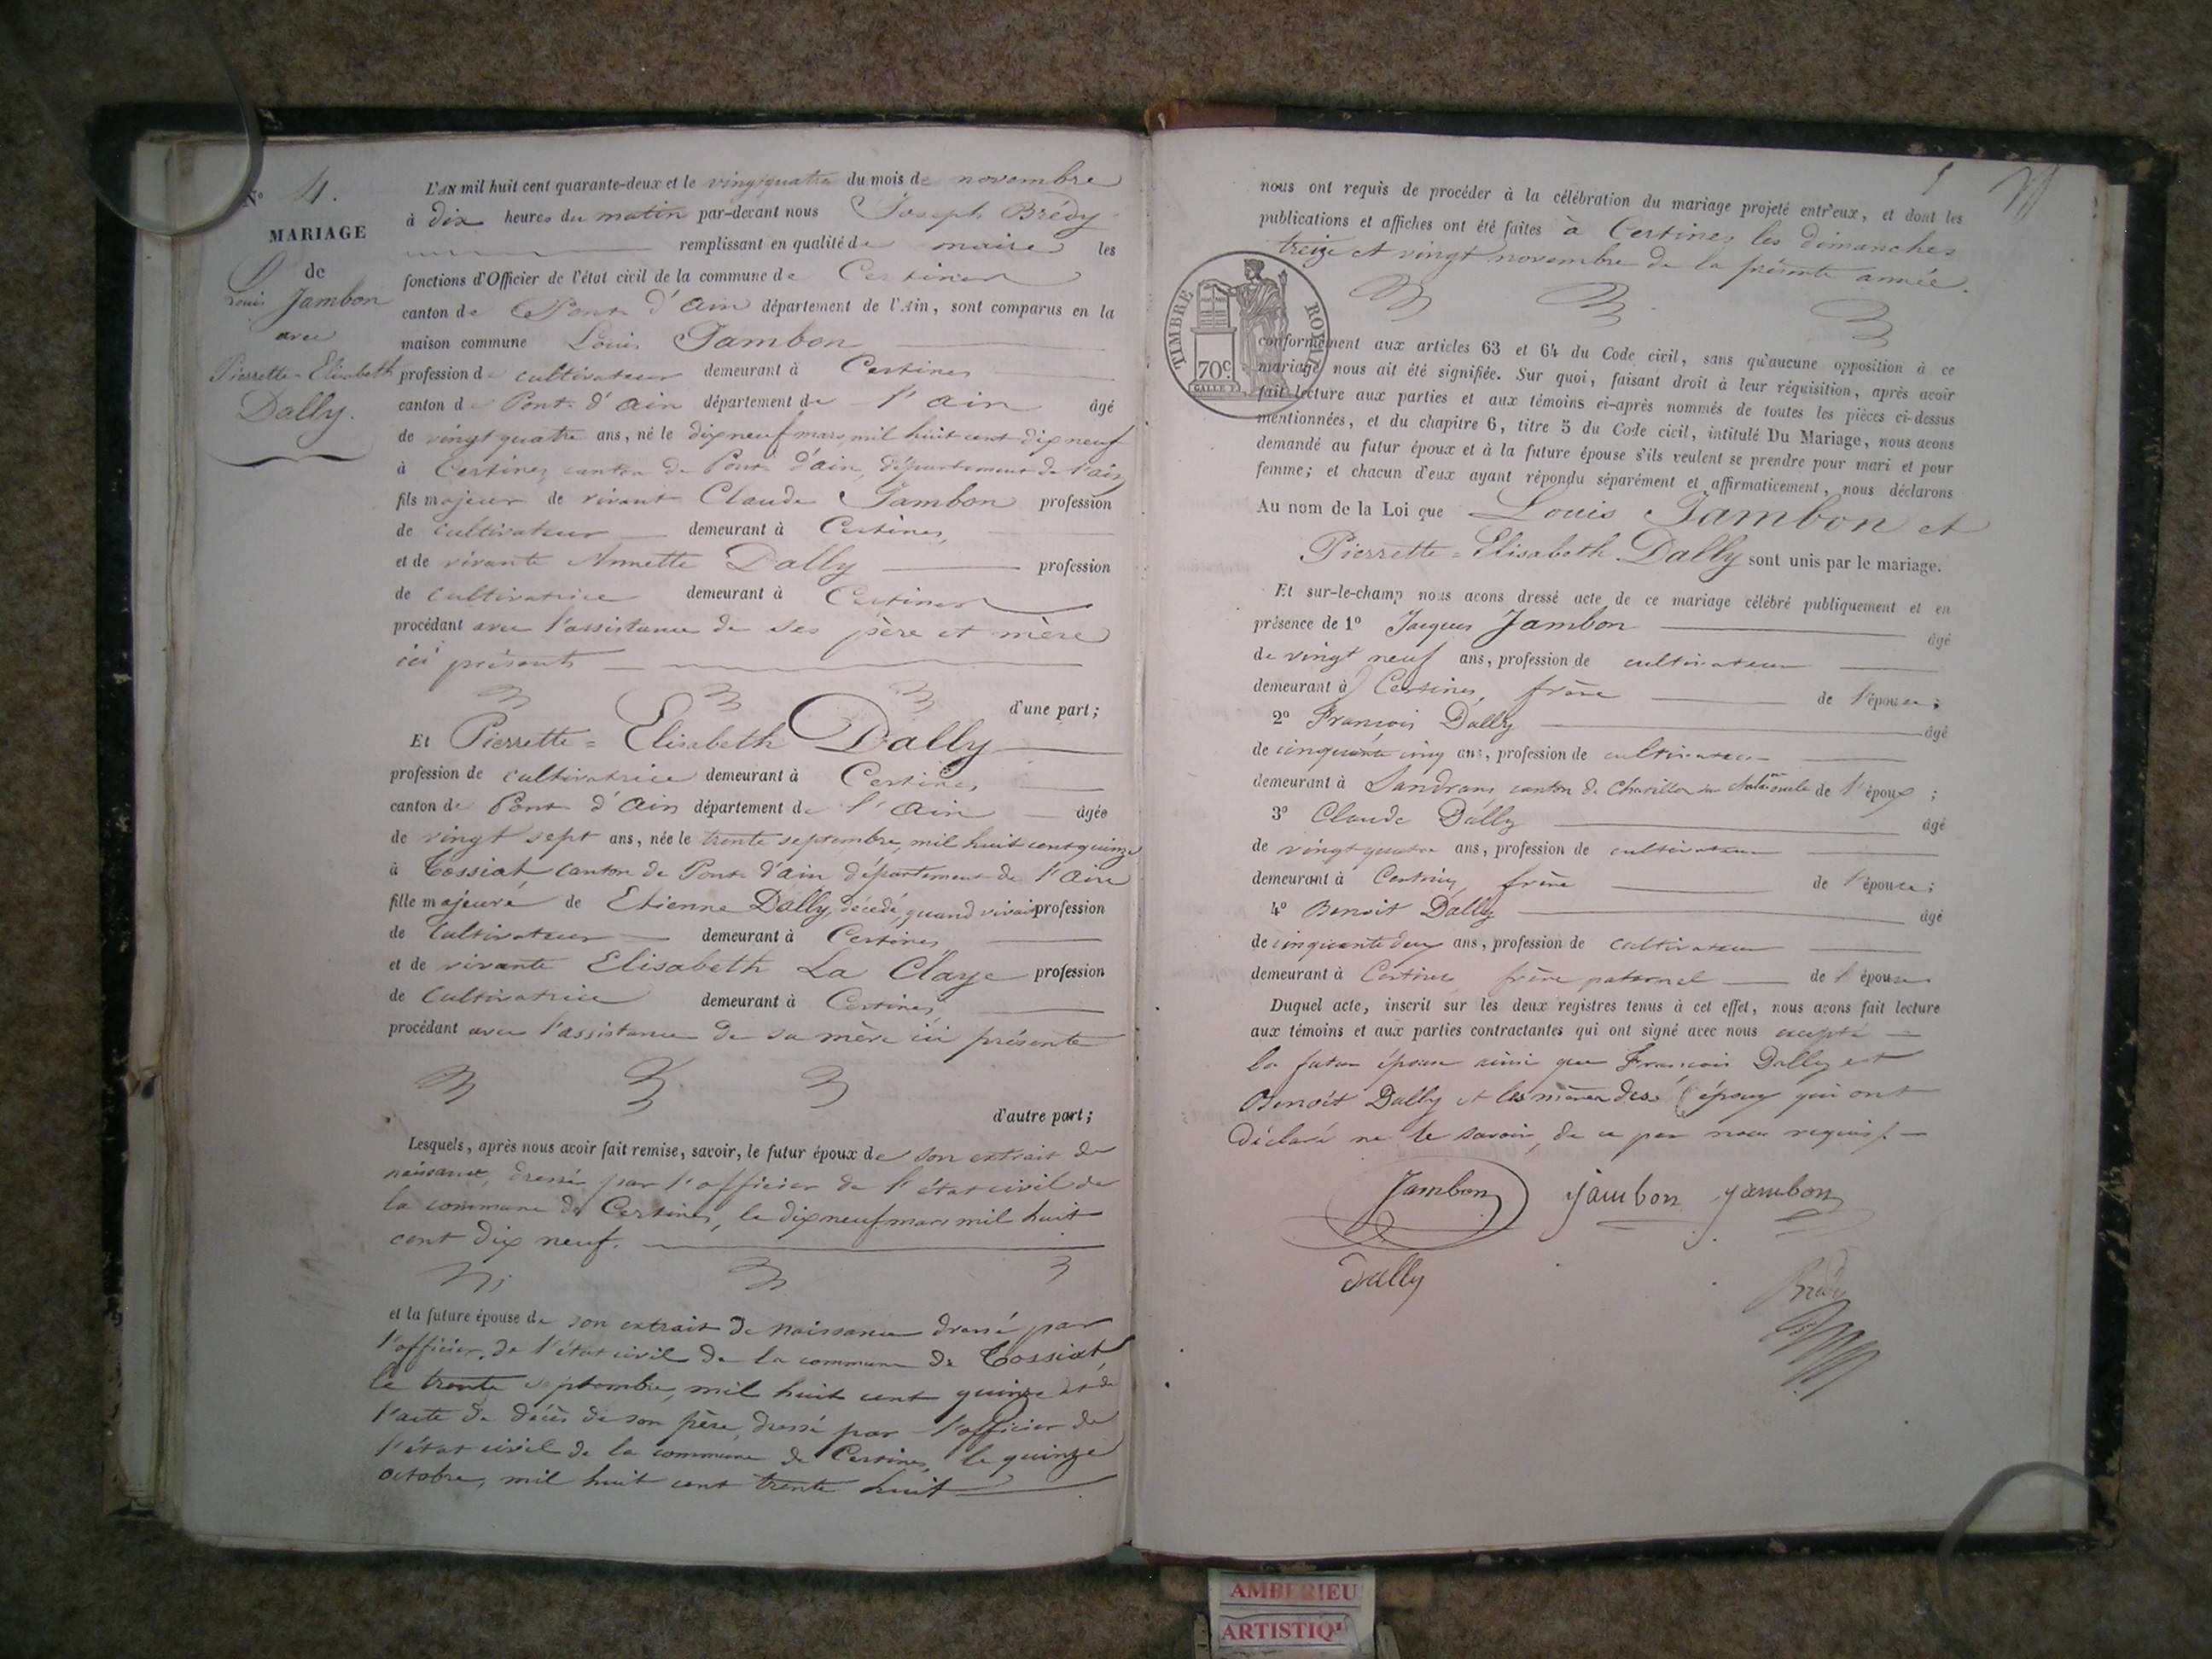 N° 4.
MARIAGE
de
Louis Jambon
avec
Pierrette-Elisabeth
Dally.
L'AN mil huit cent quarante-deux et le vingt quatre du mois de novembre
à dix heures du matin par-devant nous Joseph Brédy
remplissant en qualité de maire les
fonctions d'Officier de l'état civil de la commune de Certines
canton de Pont d'ain département de l'Ain, sont comparus en la
maison commune Louis Jambon
profession de cultivateur demeurant à Certines
canton de Pont d'ain département de l'ain âgé
de vingt quatre ans, né le dix neuf mars mil huit cent dix neuf
à Certines canton de Pont d'ain, département de l'ain
fils majeur de vivant Claude Jambon profession
de cultivateur demeurant à Certines
et de vivante Annette Dally profession
de cultivatrice demeurant à Certines
procédant avec l'assistance de ses père et mère
ici présents
d'une part;
Et Pierrette=Elisabeth Dally
profession de cultivatrice demeurant à Certines
canton de Pont d'ain département de l'ain âgée
de vingt sept ans, née le trente septembre, mil huit cent quinze
à Tossiat canton de Pont d'ain département de l'ain
fille majeure de Etienne Dally, décédé, quand vivait profession
de cultivateur demeurant à Certines
et de vivante Elisabeth La Claye profession
de cultivatrice demeurant à Certines
procédant avec l'assistance de sa mère ici présente
d'autre part;
Lesquels, après nous avoir fait remise, savoir, le futur époux de son extrait de
naissance, dressé par l'officier de l'état civil de
la commune de Certines, le dix neuf mars mil huit
cent dix neuf.
et la future épouse de son extrait de naissance dressé par
l'officier de l'état civil de la commune de Tossiat
le trente septembre, mil huit cent quinze et de
l'acte de décès de son père, dressé par l'officier de
l'état civil de la commune de Certines, le quinze
octobre, mil huit cent trente huit
nous ont requis de procéder à la célébration du mariage projeté entr'eux, et dont les
publications et affiches ont été faites à Certines les dimanches
treize et vingt novembre de la présente année.
TIMBRE ROYAL
70c.
conformément aux articles 63 et 64 du Code civil, sans qu'aucune opposition à ce
mariage nous ait été signifiée. Sur quoi, faisant droit à leur réquisition, après avoir
fait lecture aux parties et aux témoins ci-après nommés de toutes les pièces ci-dessus
mentionnées, et du chapitre 6, titre 5 du Code civil, intitulé Du Mariage, nous avons
demandé au futur époux et à la future épouse s'ils veulent se prendre pour mari et pour
femme; et chacun d'eux ayant répondu séparément et affirmativement, nous déclarons
Au nom de la Loi que Louis Jambon et
Pierrette=Elisabeth Dally sont unis par le mariage.
Et sur-le-champ nous avons dressé acte de ce mariage célébré publiquement et en
présence de 1° Jacques Jambon âgé
de vingt neuf ans, profession de cultivateur
demeurant à Certines, frère de l'époux;
2° François Dally âgé
de cinquante cinq ans, profession de cultivateur
demeurant à Sandrans canton de Chatillon de l'époux;
3° Claude Dally âgé
de vingt quatre ans, profession de cultivateur
demeurant à Certines, frère de l'épouse;
4° Benoit Dally âgé
de cinquante deux ans, profession de cultivateur
demeurant à Certines frère paternel de l'épouse
Duquel acte, inscrit sur les deux registres tenus à cet effet, nous avons fait lecture
aux témoins et aux parties contractantes qui ont signé avec nous excepté
la future épouse ainsi que François Dally et
Benoit Dally et les mères des époux qui ont
déclaré ne le savoir, de ce par nous requis.
Jambon jambon jambon
Dally
Brédy
AMBERIEU
ARTISTIQ